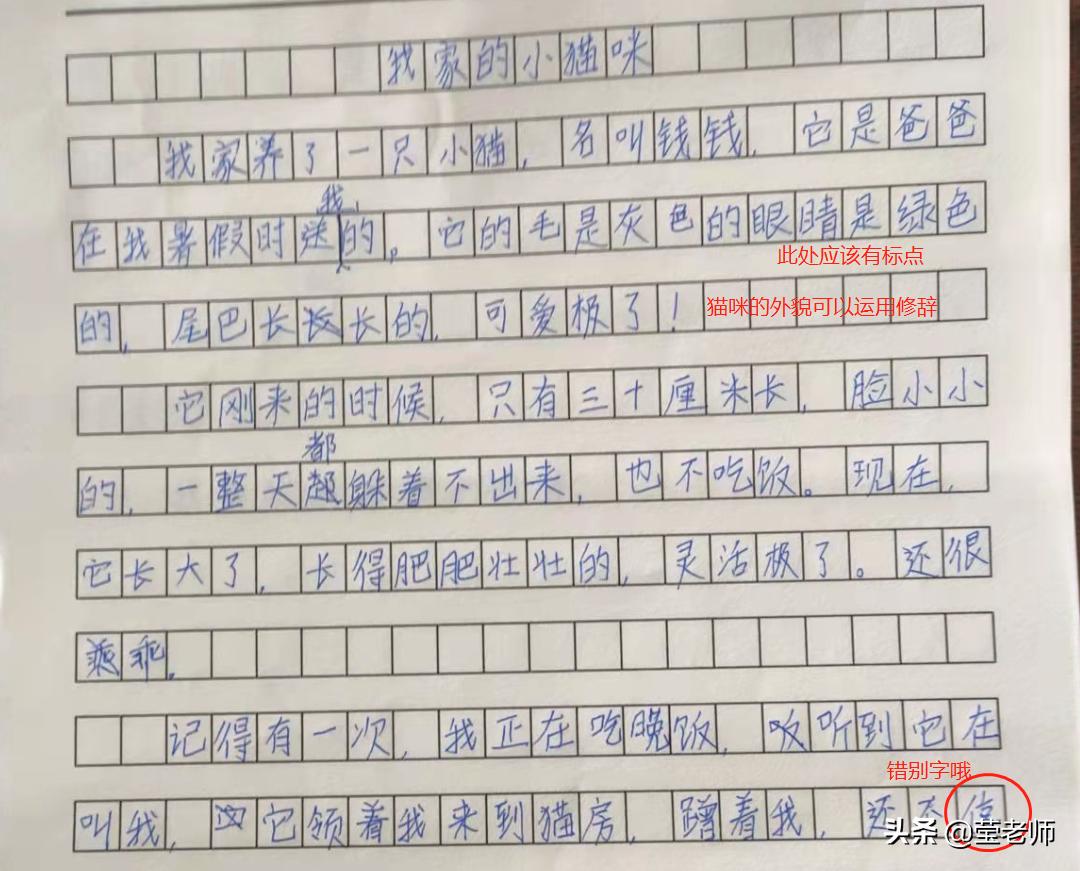 我家的小猫咪
我家养了一只小猫,名叫钱钱,它是爸爸
我
在我暑假时送的。它的毛是灰色的眼睛是绿色
此处应该有标点
的,尾巴长长的,可爱极了!
猫咪的外貌可以运用修辞
它刚来的时候,只有三十厘米长,脸小小
都
的,一整天躲着不出来,也不吃饭。现在,
它长大了,长得肥肥壮壮的,灵活极了。还很
乖。
记得有一次,我正在吃晚饭,听到它在
错别字哦
叫我,它领着我来到猫房,蹭着我,还不
头条 @莹老师